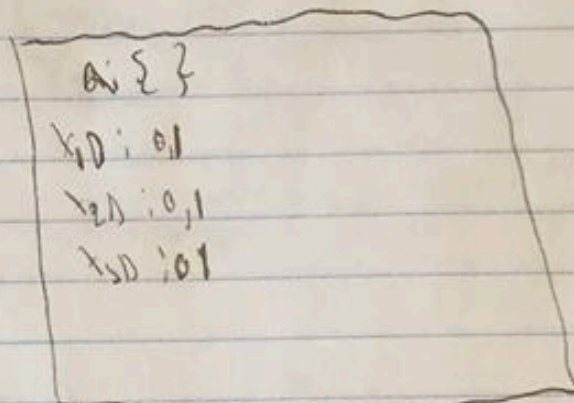 a: { }
X₁D : 0,1
X₂D : 0,1
X₃D : 01